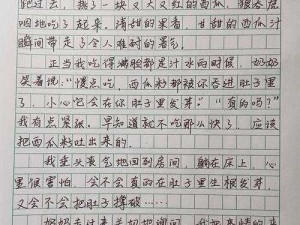 跑过去，掰了一块又大又红的西瓜，狼吞虎
咽地吃了起来。清甜的果香，甘甜的西瓜汁
瞬间带走了令人难耐的暑气。
正当我吃得满脸都是汁水的时候，奶奶
笑着说："慢点吃，西瓜籽都被你吞进肚子里
了，小心它会在你肚子里发芽。""真的吗？"
我有点紧张。早知道就不吃那么快了，应该
把西瓜籽吐出来的。
我垂头丧气地回到房间，躺在床上，心
里很害怕，会不会真的在肚子里生根发芽，
又会不会把肚子撑破……
奶奶走过来关切地询问，我把事情的来